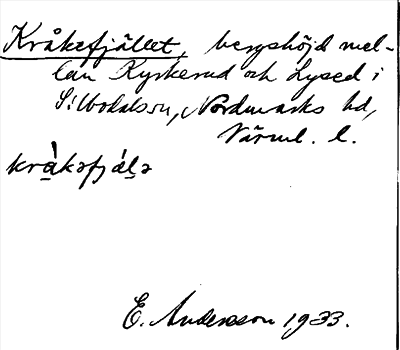 Kråkefjället, bergshöjd mel-
lan Kyrkerud och Lysed i
Silbodalssn, Nordmarks hd,
Värml. l.
krå̀kəfjälə
E. Andersson 1933.